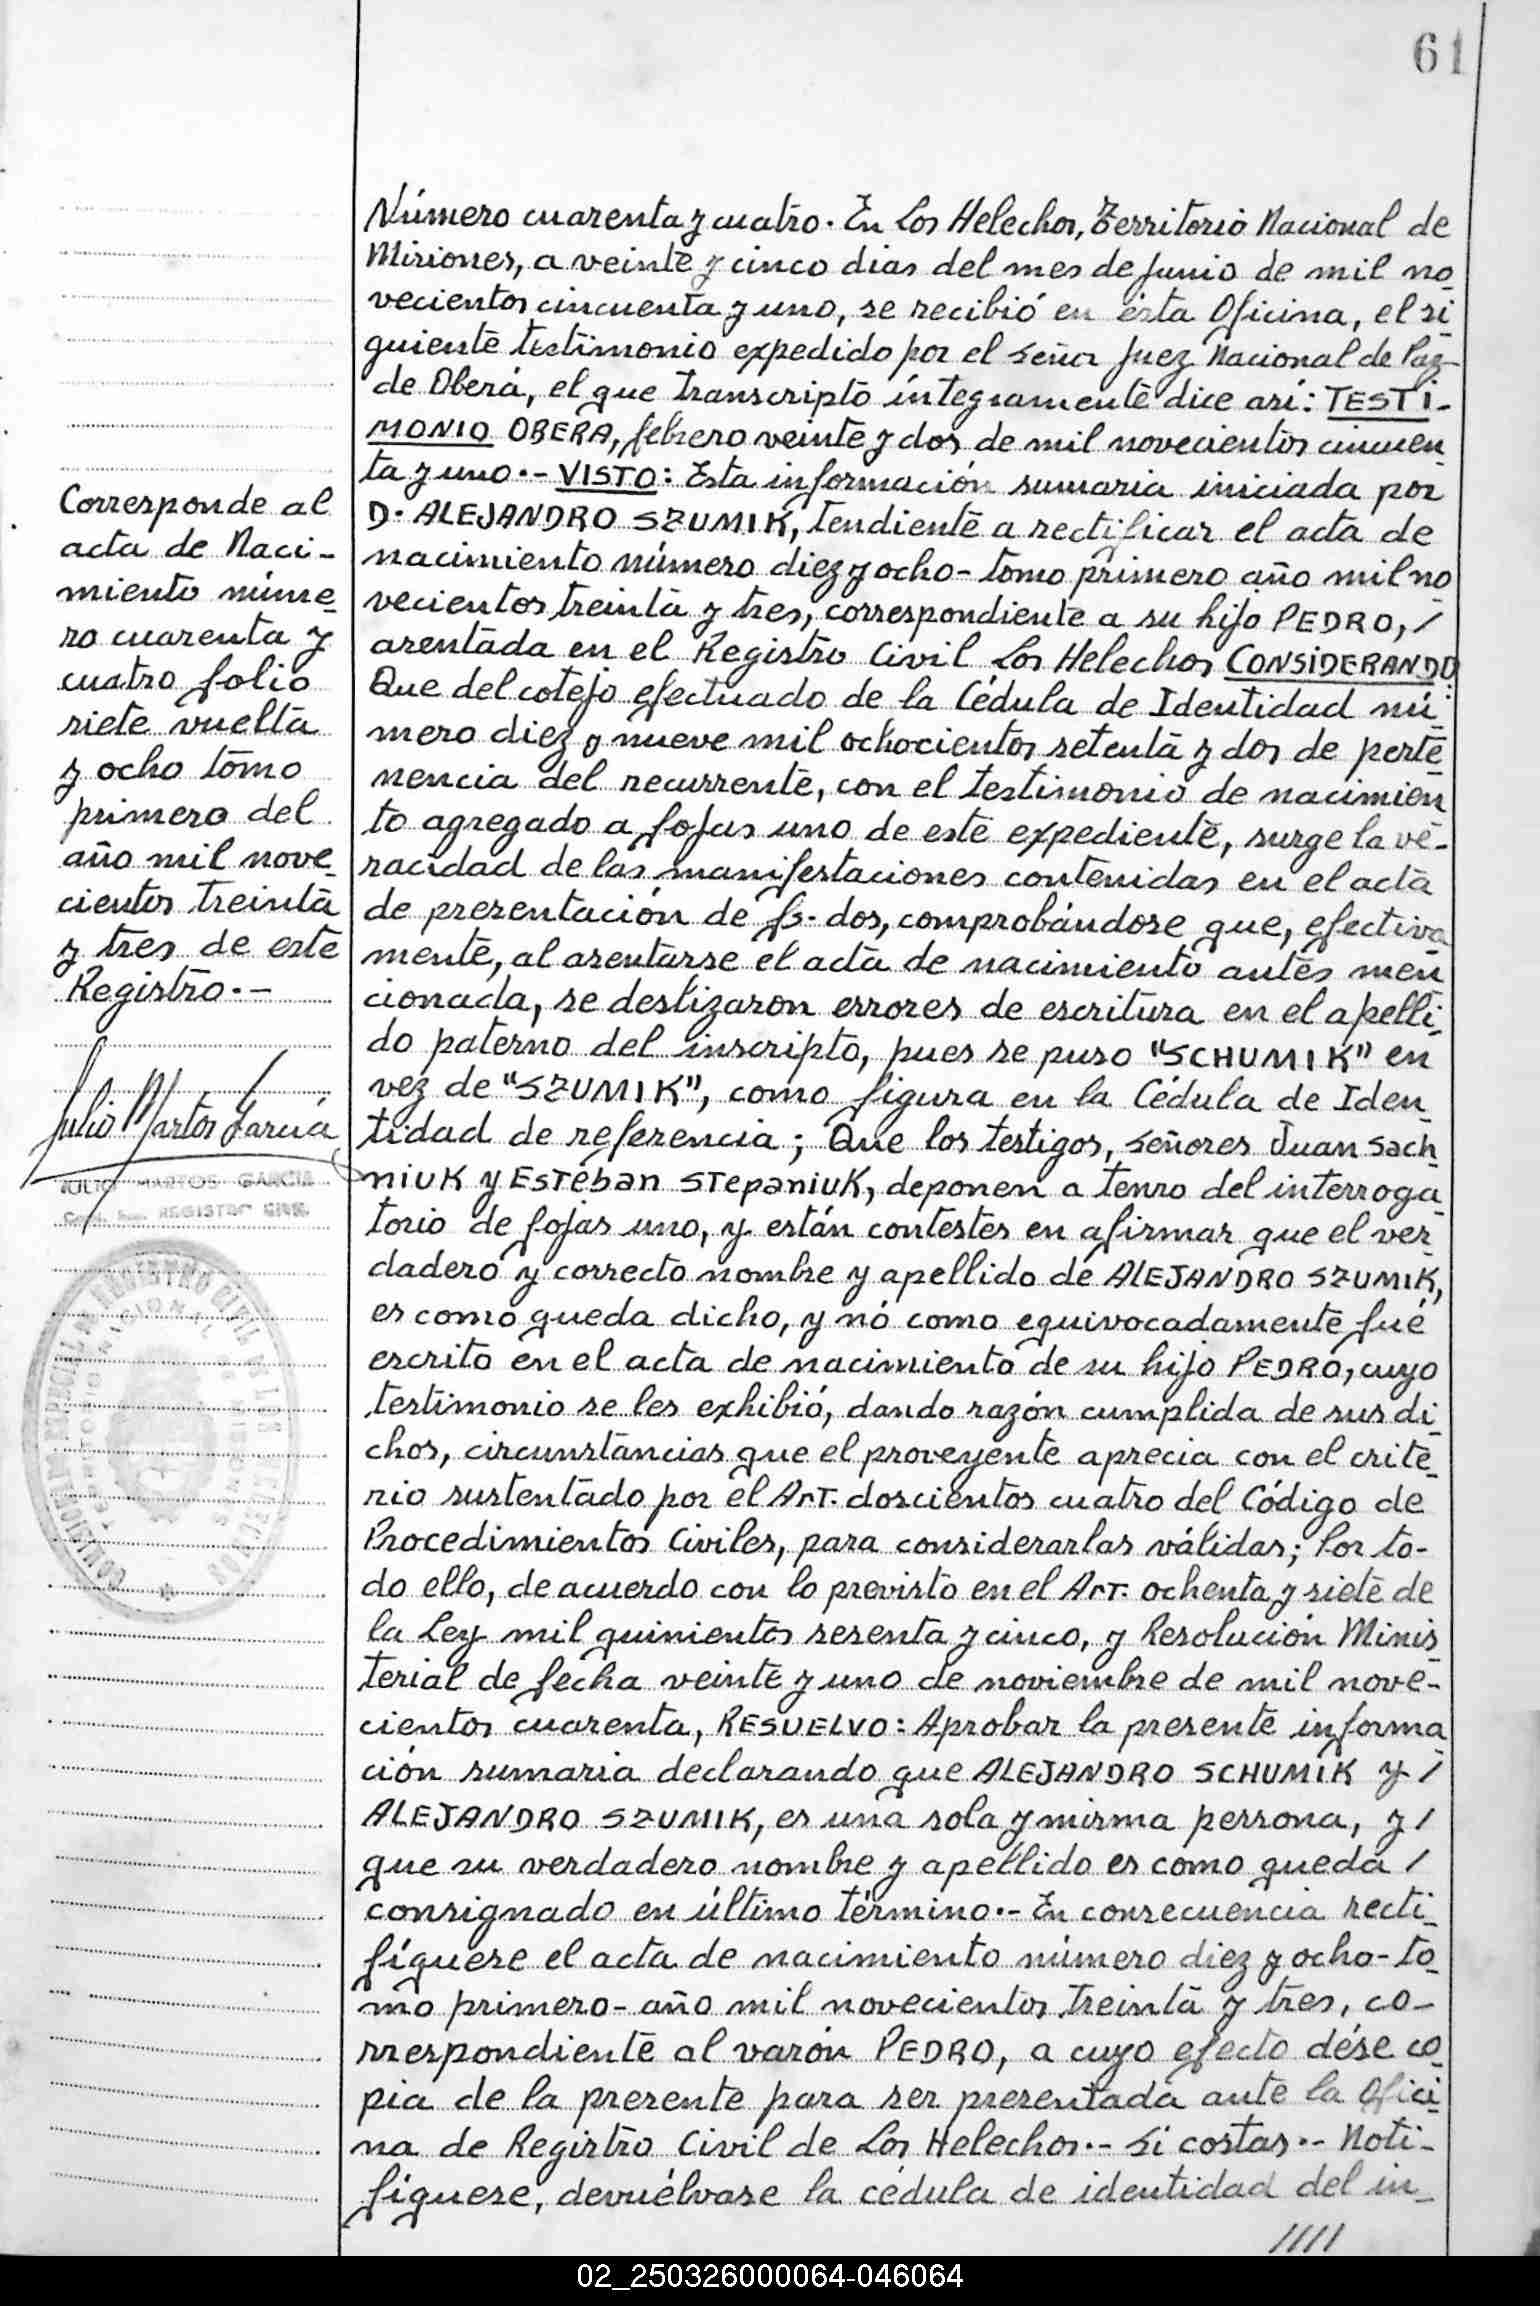 61
Número cuarenta y cuatro. En Los Helechos, Territorio Nacional de
Misiones, a veinte y cinco dias del mes de Junio de mil no
vecientos cincuenta y uno, se recibió en ésta Oficina, el si
guiente testimonio expedido por el Señor Juez Nacional de Paz
de Oberá, el que transcripto íntegramente dice así: TESTI-
MONIO OBERA, febrero veinte y dos de mil novecientos cincuen
ta y uno.- VISTO: Esta información sumaria iniciada por
D. ALEJANDRO SZUMIK, tendiente a rectificar el acta de
nacimiento número diez y ocho- tomo primero año mil no
vecientos treinta y tres, correspondiente a su hijo PEDRO, /
asentada en el Registro Civil Los Helechos CONSIDERANDO:
Que del cotejo efectuado de la Cédula de Identidad nú
mero diez y nueve mil ochocientos setenta y dos de perte
nencia del recurrente, con el testimonio de nacimien
to agregado a fojas uno de este expediente, surge la ve-
racidad de las manifestaciones contenidas en el acta
de presentación de fs. dos, comprobándose que, efectiva
mente, al asentarse el acta de nacimiento antes men
cionada, se deslizaron errores de escritura en el apelli
do paterno del inscripto, pues se puso "SCHUMIK" en
vez de "SZUMIK", como figura en la Cédula de Iden
tidad de referencia; Que los testigos, Señores Juan Sach
niuk y Estéban Stepaniuk, deponen a tenro del interroga
torio de fojas uno, y están contestes en afirmar que el ver
dadero y correcto nombre y apellido de ALEJANDRO SZUMIK,
es como queda dicho, y nó como equivocadamente fué
escrito en el acta de nacimiento de su hijo PEDRO, cuyo
testimonio se les exhibió, dando razón cumplida de sus di
chos, circunstancias que el proveyente aprecia con el crite
rio sustentado por el Art. doscientos cuatro del Código de
Procedimientos Civiles, para considerarlas válidas; Por to-
do ello, de acuerdo con lo previsto en el Art. ochenta y siete de
la Ley mil quinientos sesenta y cinco, y Resolución Minis
terial de fecha veinte y uno de noviembre de mil nove-
cientos cuarenta, RESUELVO: Aprobar la presente informa
ción sumaria declarando que ALEJANDRO SCHUMIK y /
ALEJANDRO SZUMIK, es una sola y misma persona, y /
que su verdadero nombre y apellido es como queda /
consignado en último término.- En consecuencia recti
fíquese el acta de nacimiento número diez y ocho- to
mo primero- año mil novecientos treinta y tres, co-
rrespondiente al varón PEDRO, a cuyo efecto dése co
pia de la presente para ser presentada ante la Ofici
na de Registro Civil de Los Helechos.- Si costas.- Noti-
fíquese, devuélvase la cédula de identidad del in
////
Corresponde al
acta de Naci-
miento núme
ro cuarenta y
cuatro folio
siete vuelta
y ocho tomo
primero del
año mil nove
cientos treinta
y tres de este
Registro.-
Julio Martos García
JULIO MARTOS GARCIA
REGISTRO CIVIL
02_250326000064-046064